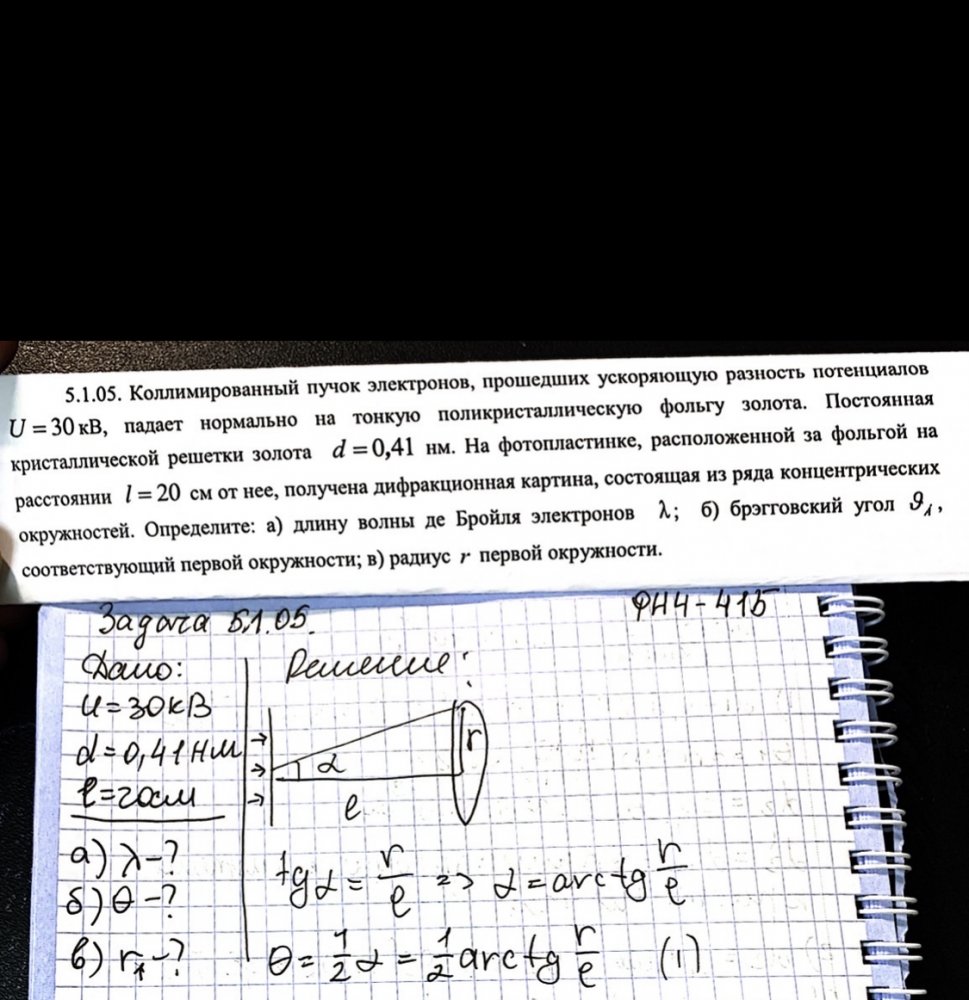 5.1.05. Коллимированный пучок электронов, прошедших ускоряющую разность потенциалов
U = 30 кВ, падает нормально на тонкую поликристаллическую фольгу золота. Постоянная
кристаллической решетки золота d = 0,41 нм. На фотопластинке, расположенной за фольгой на
расстоянии l = 20 см от нее, получена дифракционная картина, состоящая из ряда концентрических
окружностей. Определите: а) длину волны де Бройля электронов λ; б) брэгговский угол ϑ₁,
соответствующий первой окружности; в) радиус r первой окружности.
Задача 5.1.05. ФН4-41Б
Дано: Решение:
U=30кВ
d=0,41нм
l=20см
α r
l
а) λ-?
б) θ-?
в) r₁-?
tgα = r/l => α = arctg r/l
θ = 1/2 α = 1/2 arctg r/l (1)